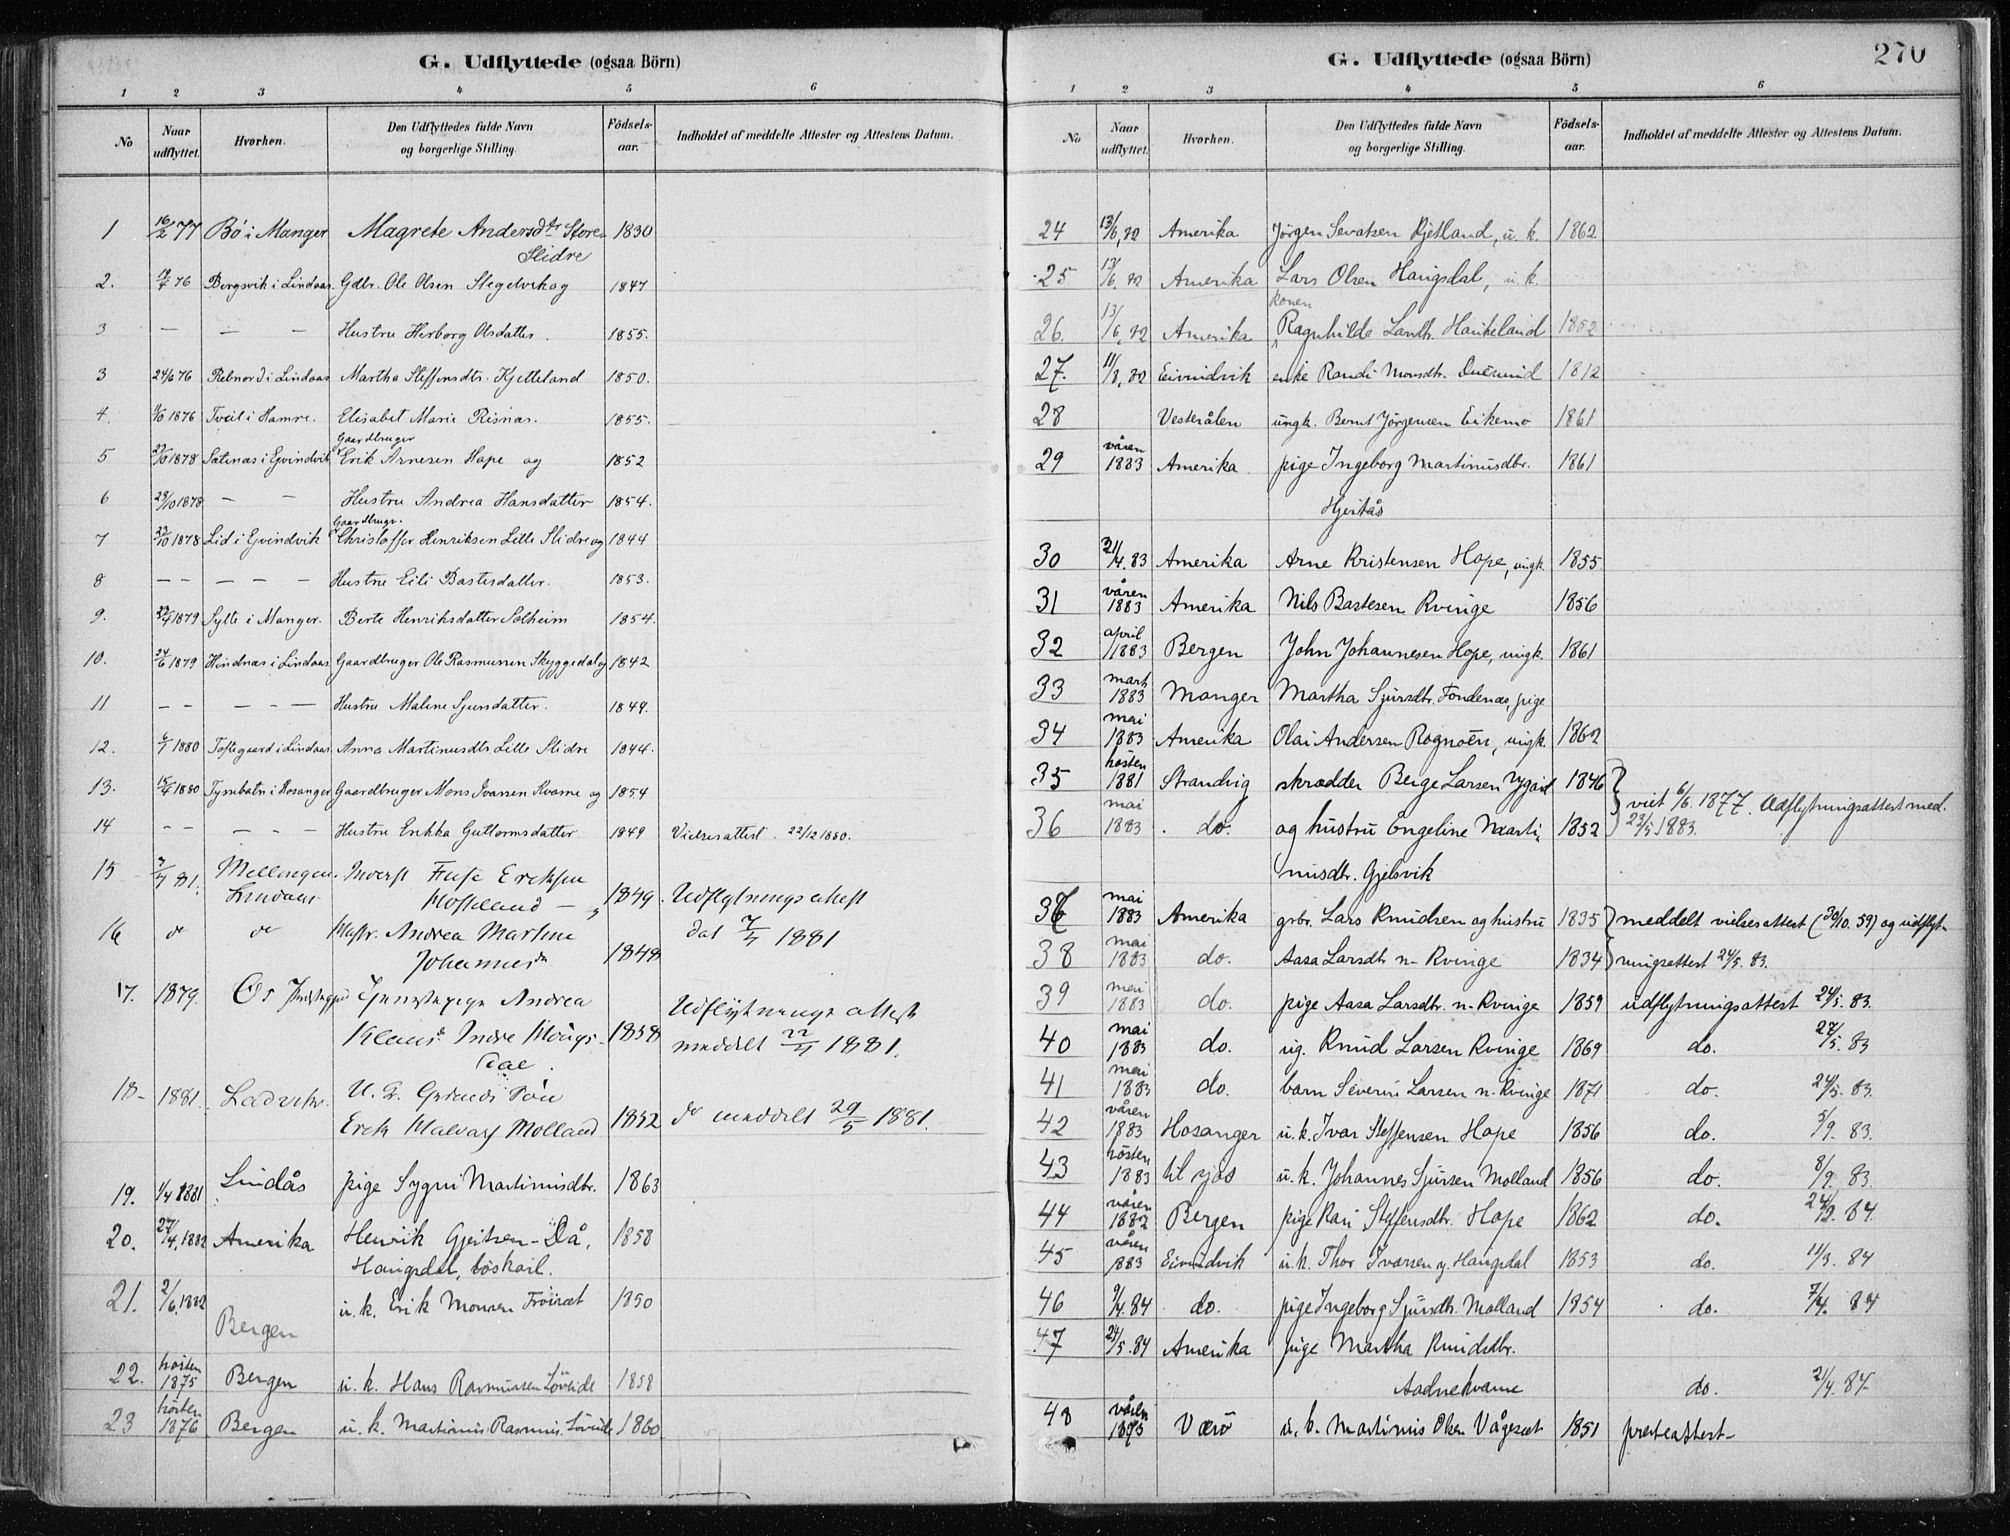 G. Udflyttede (ogsaa Börn)
1 2 3 4 5 6
No Naar udflyttet. Hvorhen. Den Udflyttedes fulde Navn og borgerlige Stilling. Födselsaar. Indholdet af meddelte Attester og Attestens Datum.
1 16/2 77 Bö i Manger Magrete Andersdtr Store 1830
Slidre
2. 76 Bergsvik i Lindaas. Gdbr. Ole Olsen og 1847
3 — — — Hustru Herborg Olsdatter. 1855.
3 24/6 76 i Lindaas Martha Steffensdtr. Kjetteland 1850.
4. 1876 Tveit i Hamre. Elisabet Marie Risnæs. 1855.
Gaardbruger
5 22/10 1878 i Eyvindvik Erik Arnesen Hope og 1852
6 29/10 1878 — — Hustru Andrea Hansdatter 1854.
Gaardbrugr.
7 22/10 1878 Lid i Eyvindvik Christoffer Henriksen Lille Slidre og 1844
8 — — — — — Hustru Eili Bastesdatter. 1853.
9. 1879 Sylte i Manger. Berte Henriksdatter Solheim 1854.
10. 24/6 1879 Hindnæs i Lindaas Gaardbruger Ole Rasmussen Skyggedal og 1842
11 — — — — — Hustru Malene Sjursdatter. 1849.
12. 1880 Toftegaard i Lindaas. Anna Martinusdtr Lille Slidre 1844.
13. 15/4 1880 i Hosanger Gaardbruger Mons Ivarsen Kvame og 1854
14 — — — — — Hustru Erikka Guttormsdatter 1849 Vielsesattest. 22/12 1880.
15 7/7 81. Mellingen. Eriksen
Lindaas 1849. Udflytningsattest
16 do do Andrea Martine dat 7/7 1881
Johannesdr 1848
17. 1879. Os Andrea Udflytningsattest
Indre Hougs- 1858 meddelt 1881.
dal.
18- 1881. Ladvik. U. K.
Erik Molland 1852 do meddelt 29/5 1881.
19. 1/4 1881 Lindås pige Sygni Martinusdtr. 1863
20. 27/4, 1882 Amerika Henrik Gjertsen Då, 1858
Haugsdal, löskarl.
21. 2/6, 1882 u. k. Erik Monsen Fröiset 1850
Bergen
22. hösten 1875 Bergen u. k. Hans Rasmussen Lövlide 1858
23 hösten 1876 Bergen u. k. Martinus Rasmus. Lövlide 1860
G. Udflyttede (ogsaa Börn) 270
1 2 3 4 5 6
No Naar udflyttet. Hvorhen. Den Udflyttedes fulde Navn og borgerlige Stilling. Födselsaar. Indholdet af meddelte Attester og Attestens Datum.
24 13/6, 82 Amerika Jörgen Sevatsen Kjetland, u. k. 1862
25 13/6, 82 Amerika Lars Olsen Haugsdal, u. k.
konen
26. 13/6, 82 Amerika Ragnhilde Larsdtr. Haukeland 1852
27. 11/8, 82 Eivindvik enke Randi Monsdtr. 1812
28 Vesterålen ungk. Bernt Jörgensen Eikemo 1861
29 våren 1883 Amerika pige Ingeborg Martinusdtr. 1861
Hjertås
30 21/4. 83 Amerika Arne Kristensen Hope, ungk. 1855
31 våren 1883 Amerika Nils Bastesen Kvinge 1856
32 april 1883 Bergen John Johannesen Hope, ungk. 1861
33 marts 1883 Manger Martha Sjursdtr. Fondenæs, pige
34 mai 1883 Amerika Olai Andersen Rognöen, ungk. 1862
35 hösten 1881 Strandvig skrædder Berge Larsen Nygård 1846
viet 6/6. 1877. Udflytningsattest med.
36 mai 1883 do. og hustru Engeline Marti- 1852 23/5 1883.
nusdtr. Gjelsvik
37 mai 1883 Amerika grbr. Lars Knudsen og hustru 1835 meddelt vielsesattest (30/10. 59) og udflyt-
38 mai 1883 do. Aasa Larsdtr n- Kvinge 1834 ningsattest 24/5. 83.
39 mai 1883 do. pige Aasa Larsdtr. n- Kvinge 1859 udflytningsattest 24/5. 83.
40 mai 1883 do. ug. Knud Larsen Kvinge 1869 do. 27/5. 83
41 mai 1883 do. barn Severin Larsen n- Kvinge 1871 do. 24/5. 83.
42 våren 1883 Hosanger u. k. Ivar Steffensen Hope 1856 do. 5/9. 83.
43 hösten 1883 til sjös u. k. Johannes Sjursen Molland 1856 do. 8/9. 83.
44 våren 1882 Bergen pige Kari Steffensdtr. Hope 1862 do. 24/2. 84.
45 våren 1883 Eivindvik u. k. Thor Ivarsen y. Haugsdal 1853 do. 11/3. 84
46 9/4. 84 do. pige Ingeborg Sjursdtr. Molland 1854 do. 7/4. 84
47 24/5. 84 Amerika pige Martha Knudsdtr.
Aadnekvame do. 2/4. 84
48 våren 1875 Værö u. k. Martinus Olsen Vågeset 1851 presteattest-